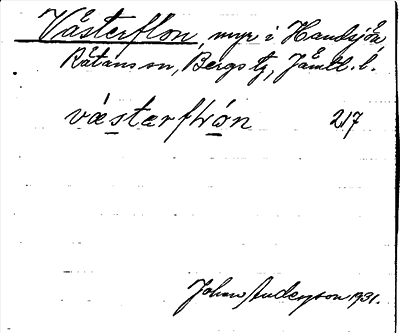 Västerflon, myr i Handsjön,
Rätans sn, Bergs tg, Jämtl. l.
västərflón 217
Johan Anderson 1931.